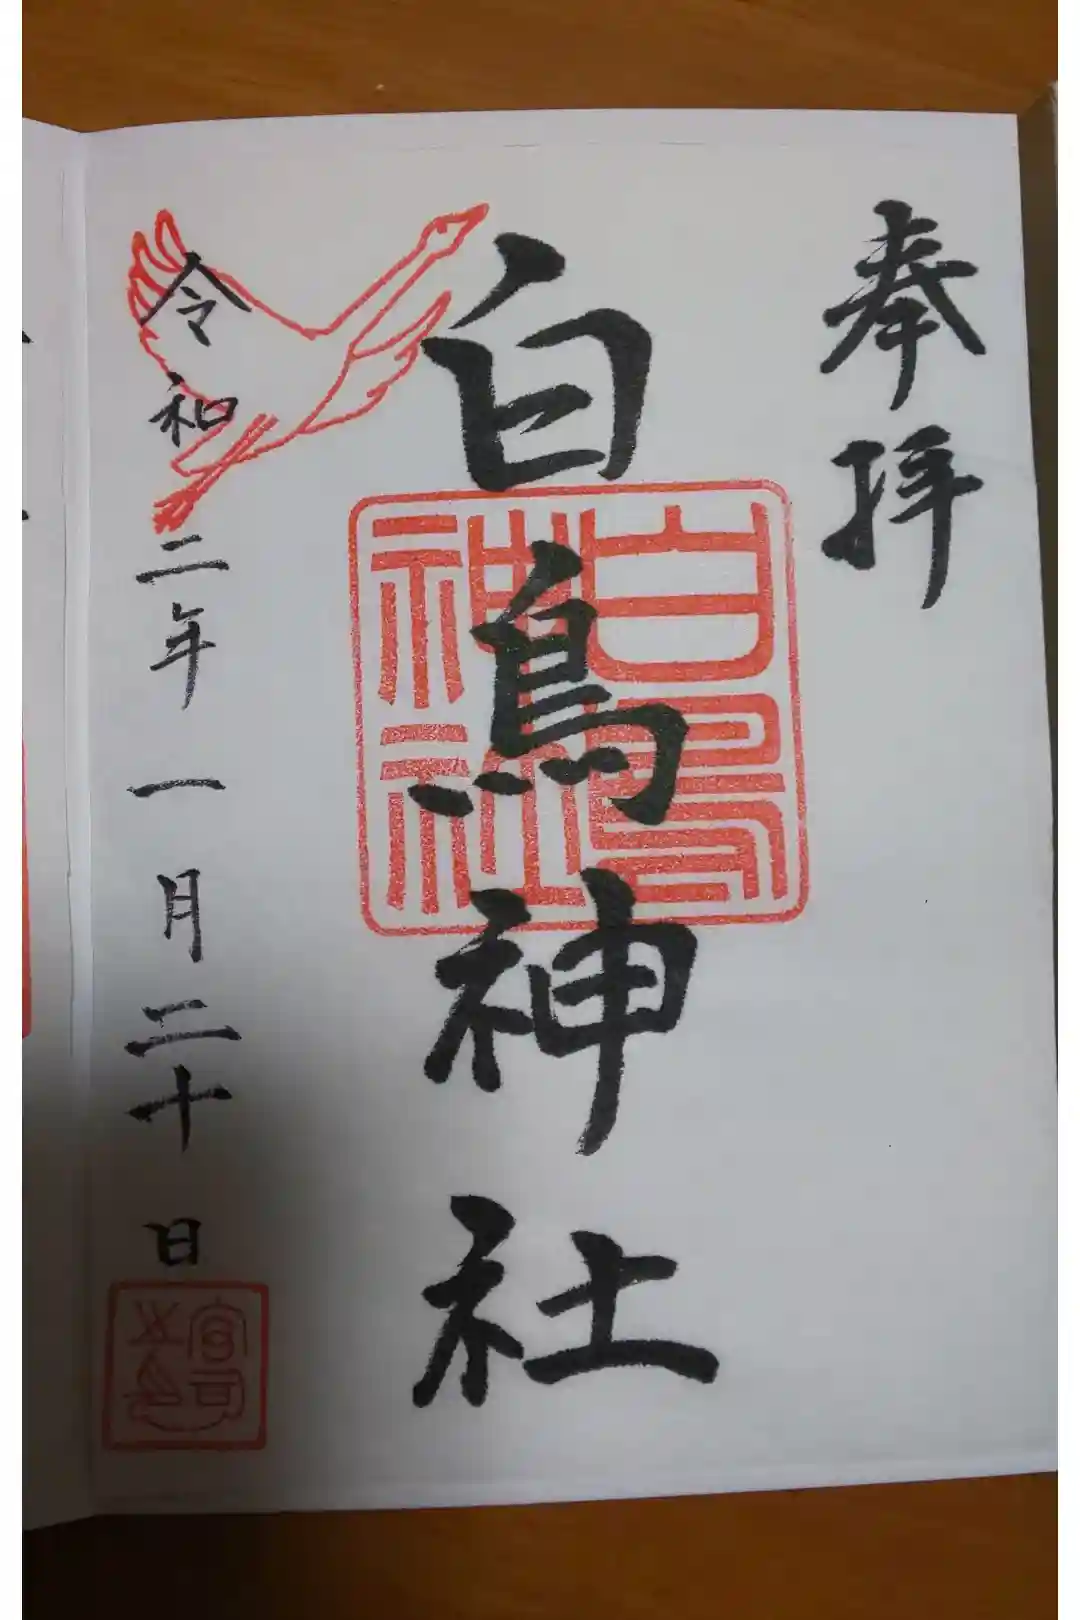 奉拝
白鳥神社
白鳥
神社
令和二年一月二十日
宮司
之印